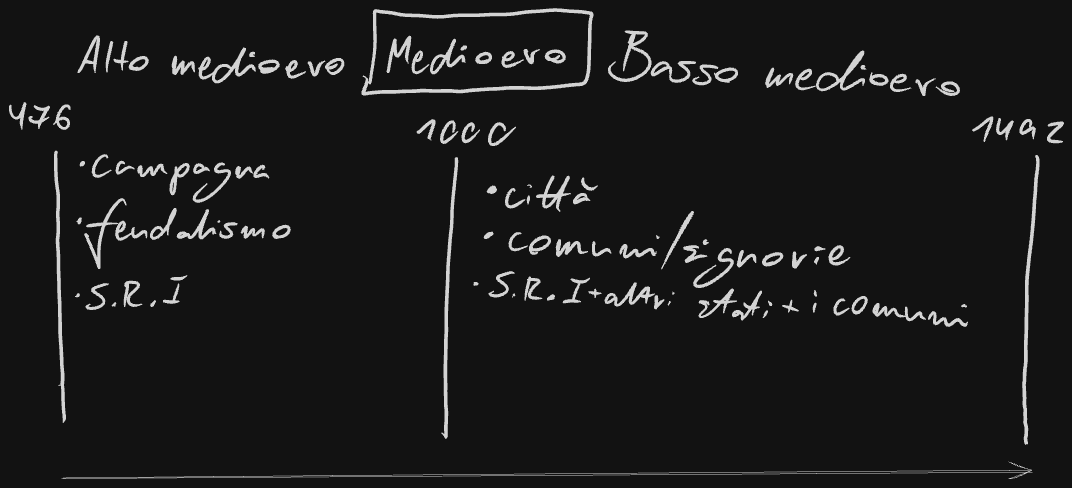 Alto medioevo Medioevo Basso medioevo
476 1000 1492
• campagna
• feudalismo
• S.R.I
• città
• comuni/signorie
• S.R.I+altri stati + i comuni